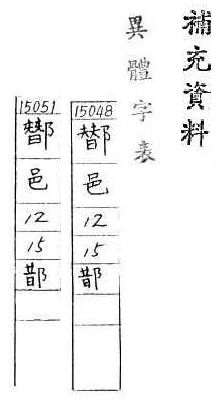 補充資料
異體字表
15048
邑
12
15
15051
邑
12
15